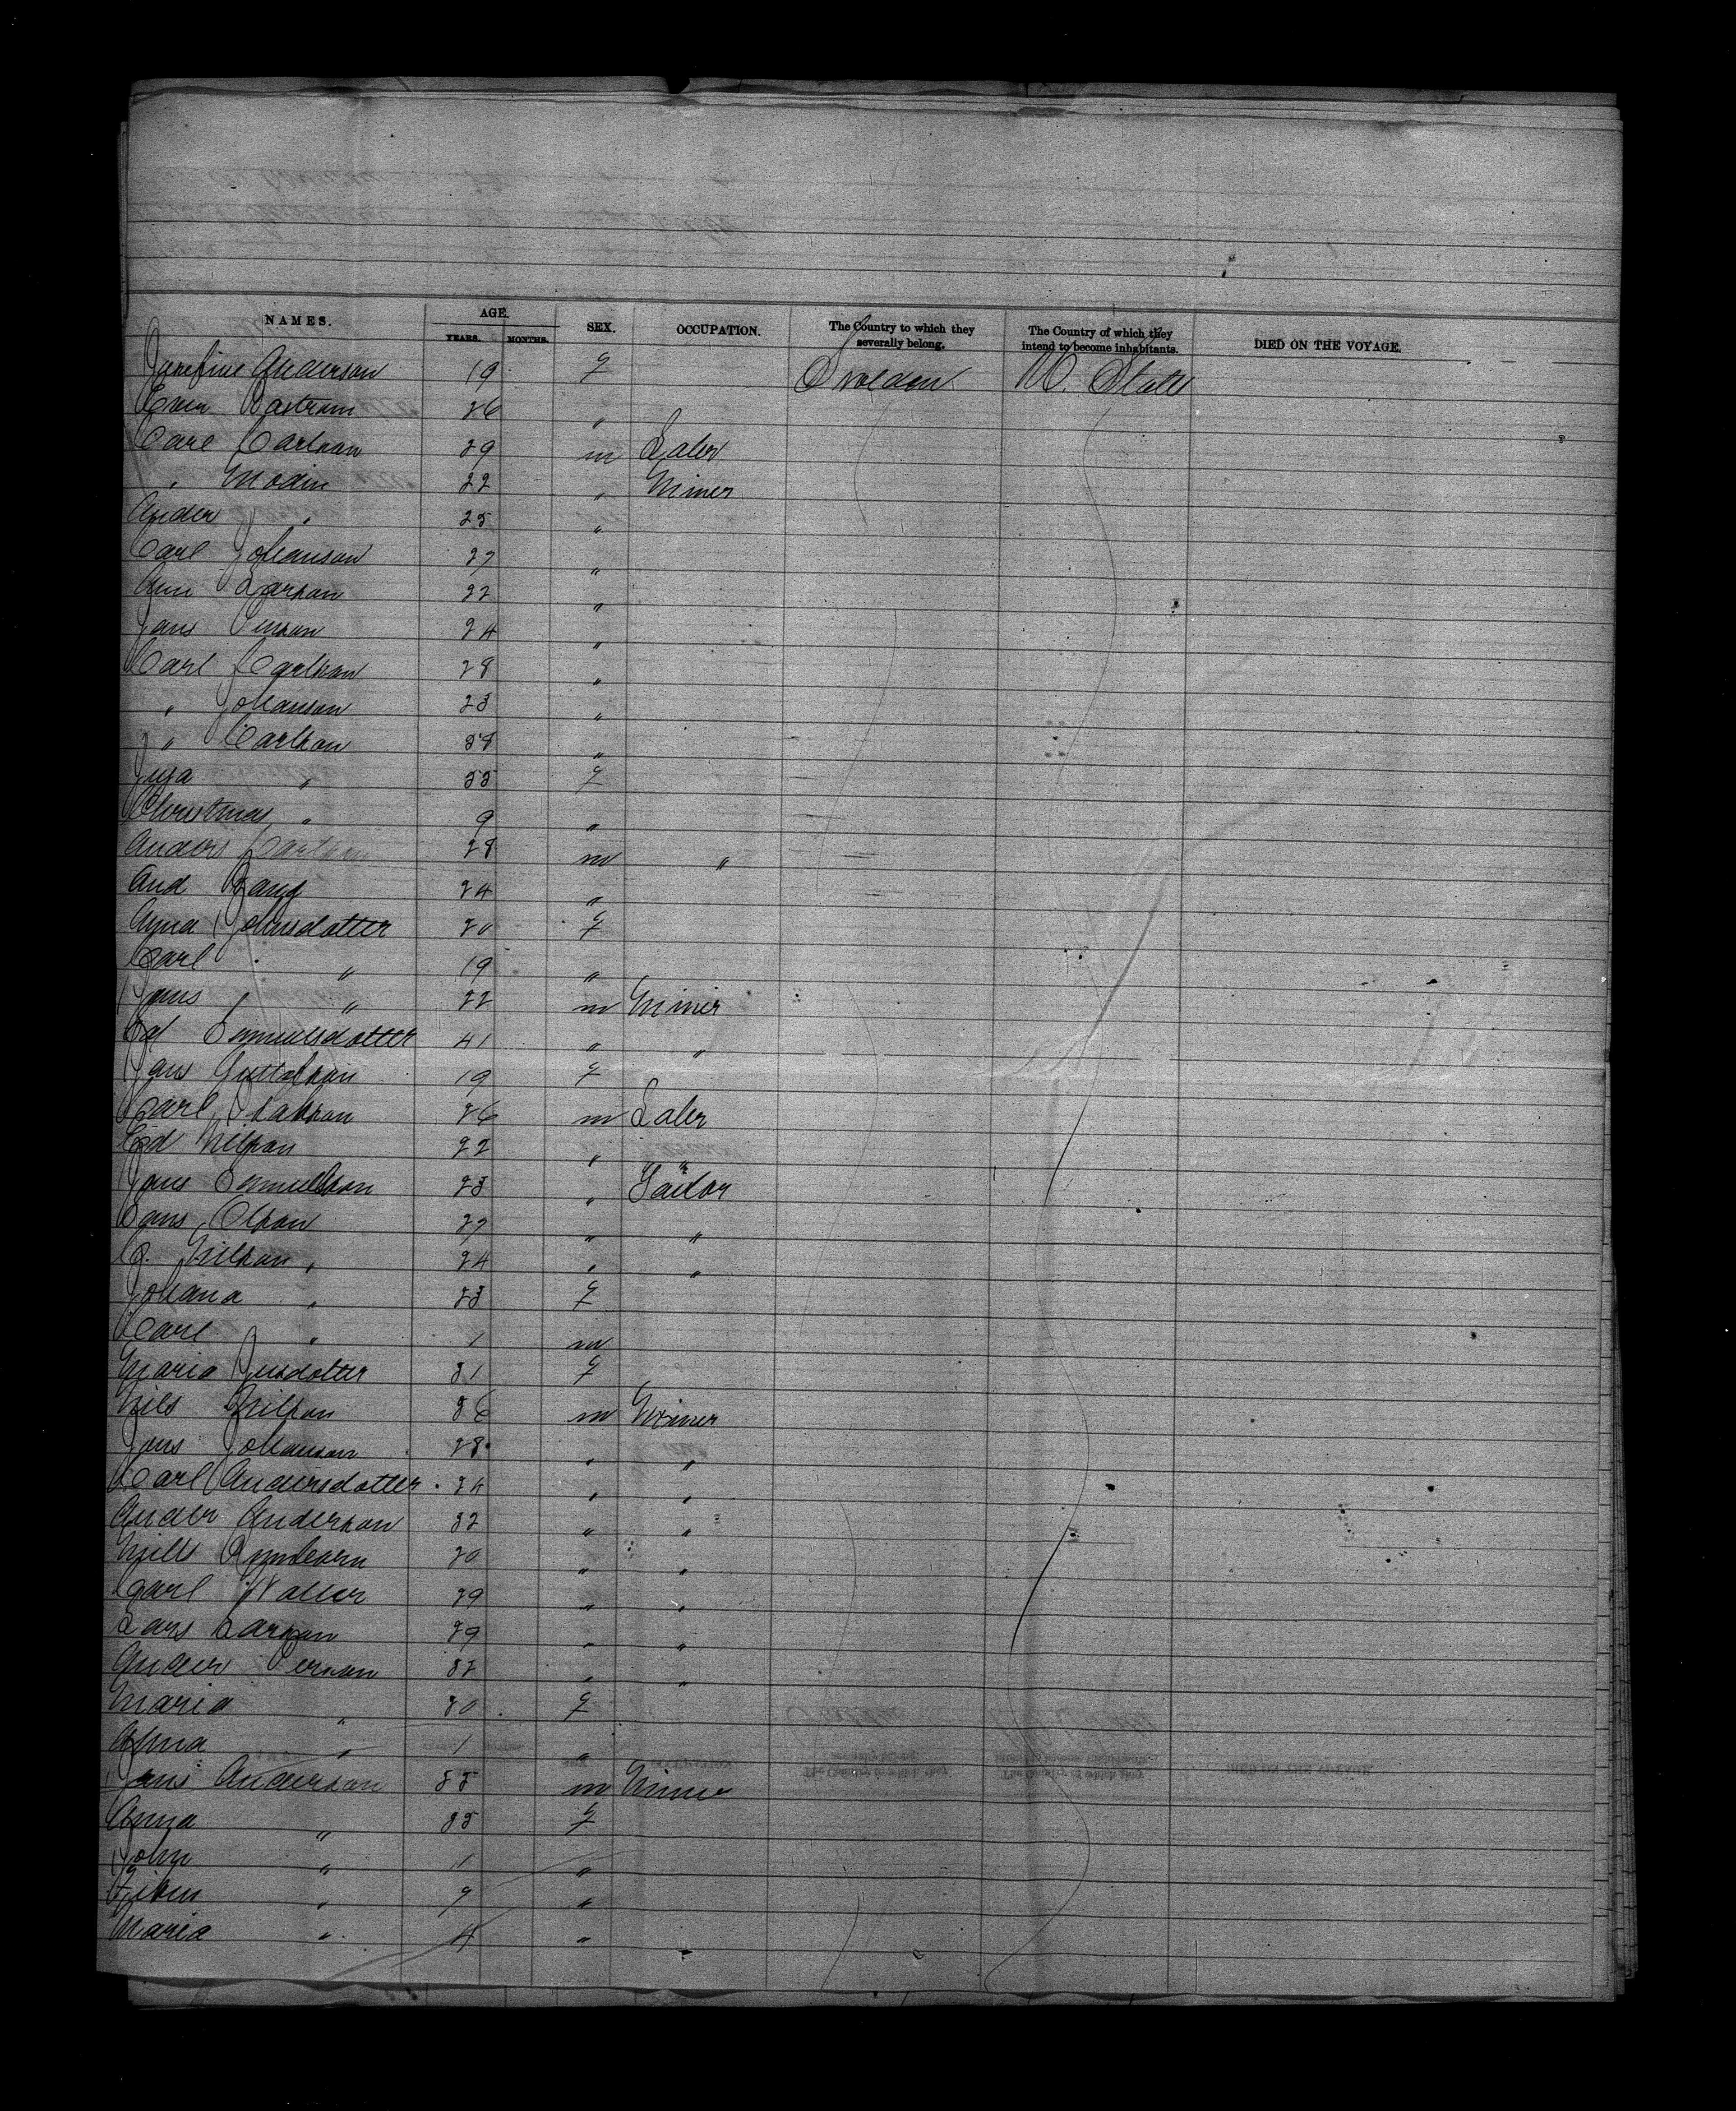 NAMES. AGE. SEX. OCCUPATION. The Country to which they severally belong. The Country of which they intend to become inhabitants. DIED ON THE VOYAGE.
YEARS. MONTHS.
Josefine Anderson 19 f Sweden U. States
Even Bastrom 26 "
Carl Carlson 29 m Labr
" Modin 22 " Miner
Ander " 25 "
Carl Johanson 27 "
Ann Larson 22 "
Jans Person 24 "
Carl Carlson 28 "
" Johanson 23 "
" Carlson 38 "
" 35 f
" 9 "
Anders Carlson 28 m "
And Bang 24 "
Anna Johnsdotter 20 f
Carl " 19 "
Jans " 22 m Miner
Samuelsdotter 41 " "
Jans Gustafson 19 f
Carl 26 m Labr
Ed Nilson 22 "
Jans Samuelson 23 " Tailor
Jans Olson 27 " "
C. Nilson " 24 " "
Johana " 23 f
Carl " 1 m
Maria Jensdotter 31 f
Nils Nilson 36 m Miner
Jans Johanson 28 " "
Carl Andersdotter 24 " "
Ander Anderson 32 " "
Nills 20 " "
Carl 29 " "
Lars Larson 29 " "
Ander Person 32 " "
Maria " 30 f
Anna " 1 "
Jans Anderson 35 m Miner
Anna " 35 f
John " 11 "
" 9 "
Maria " 4 "